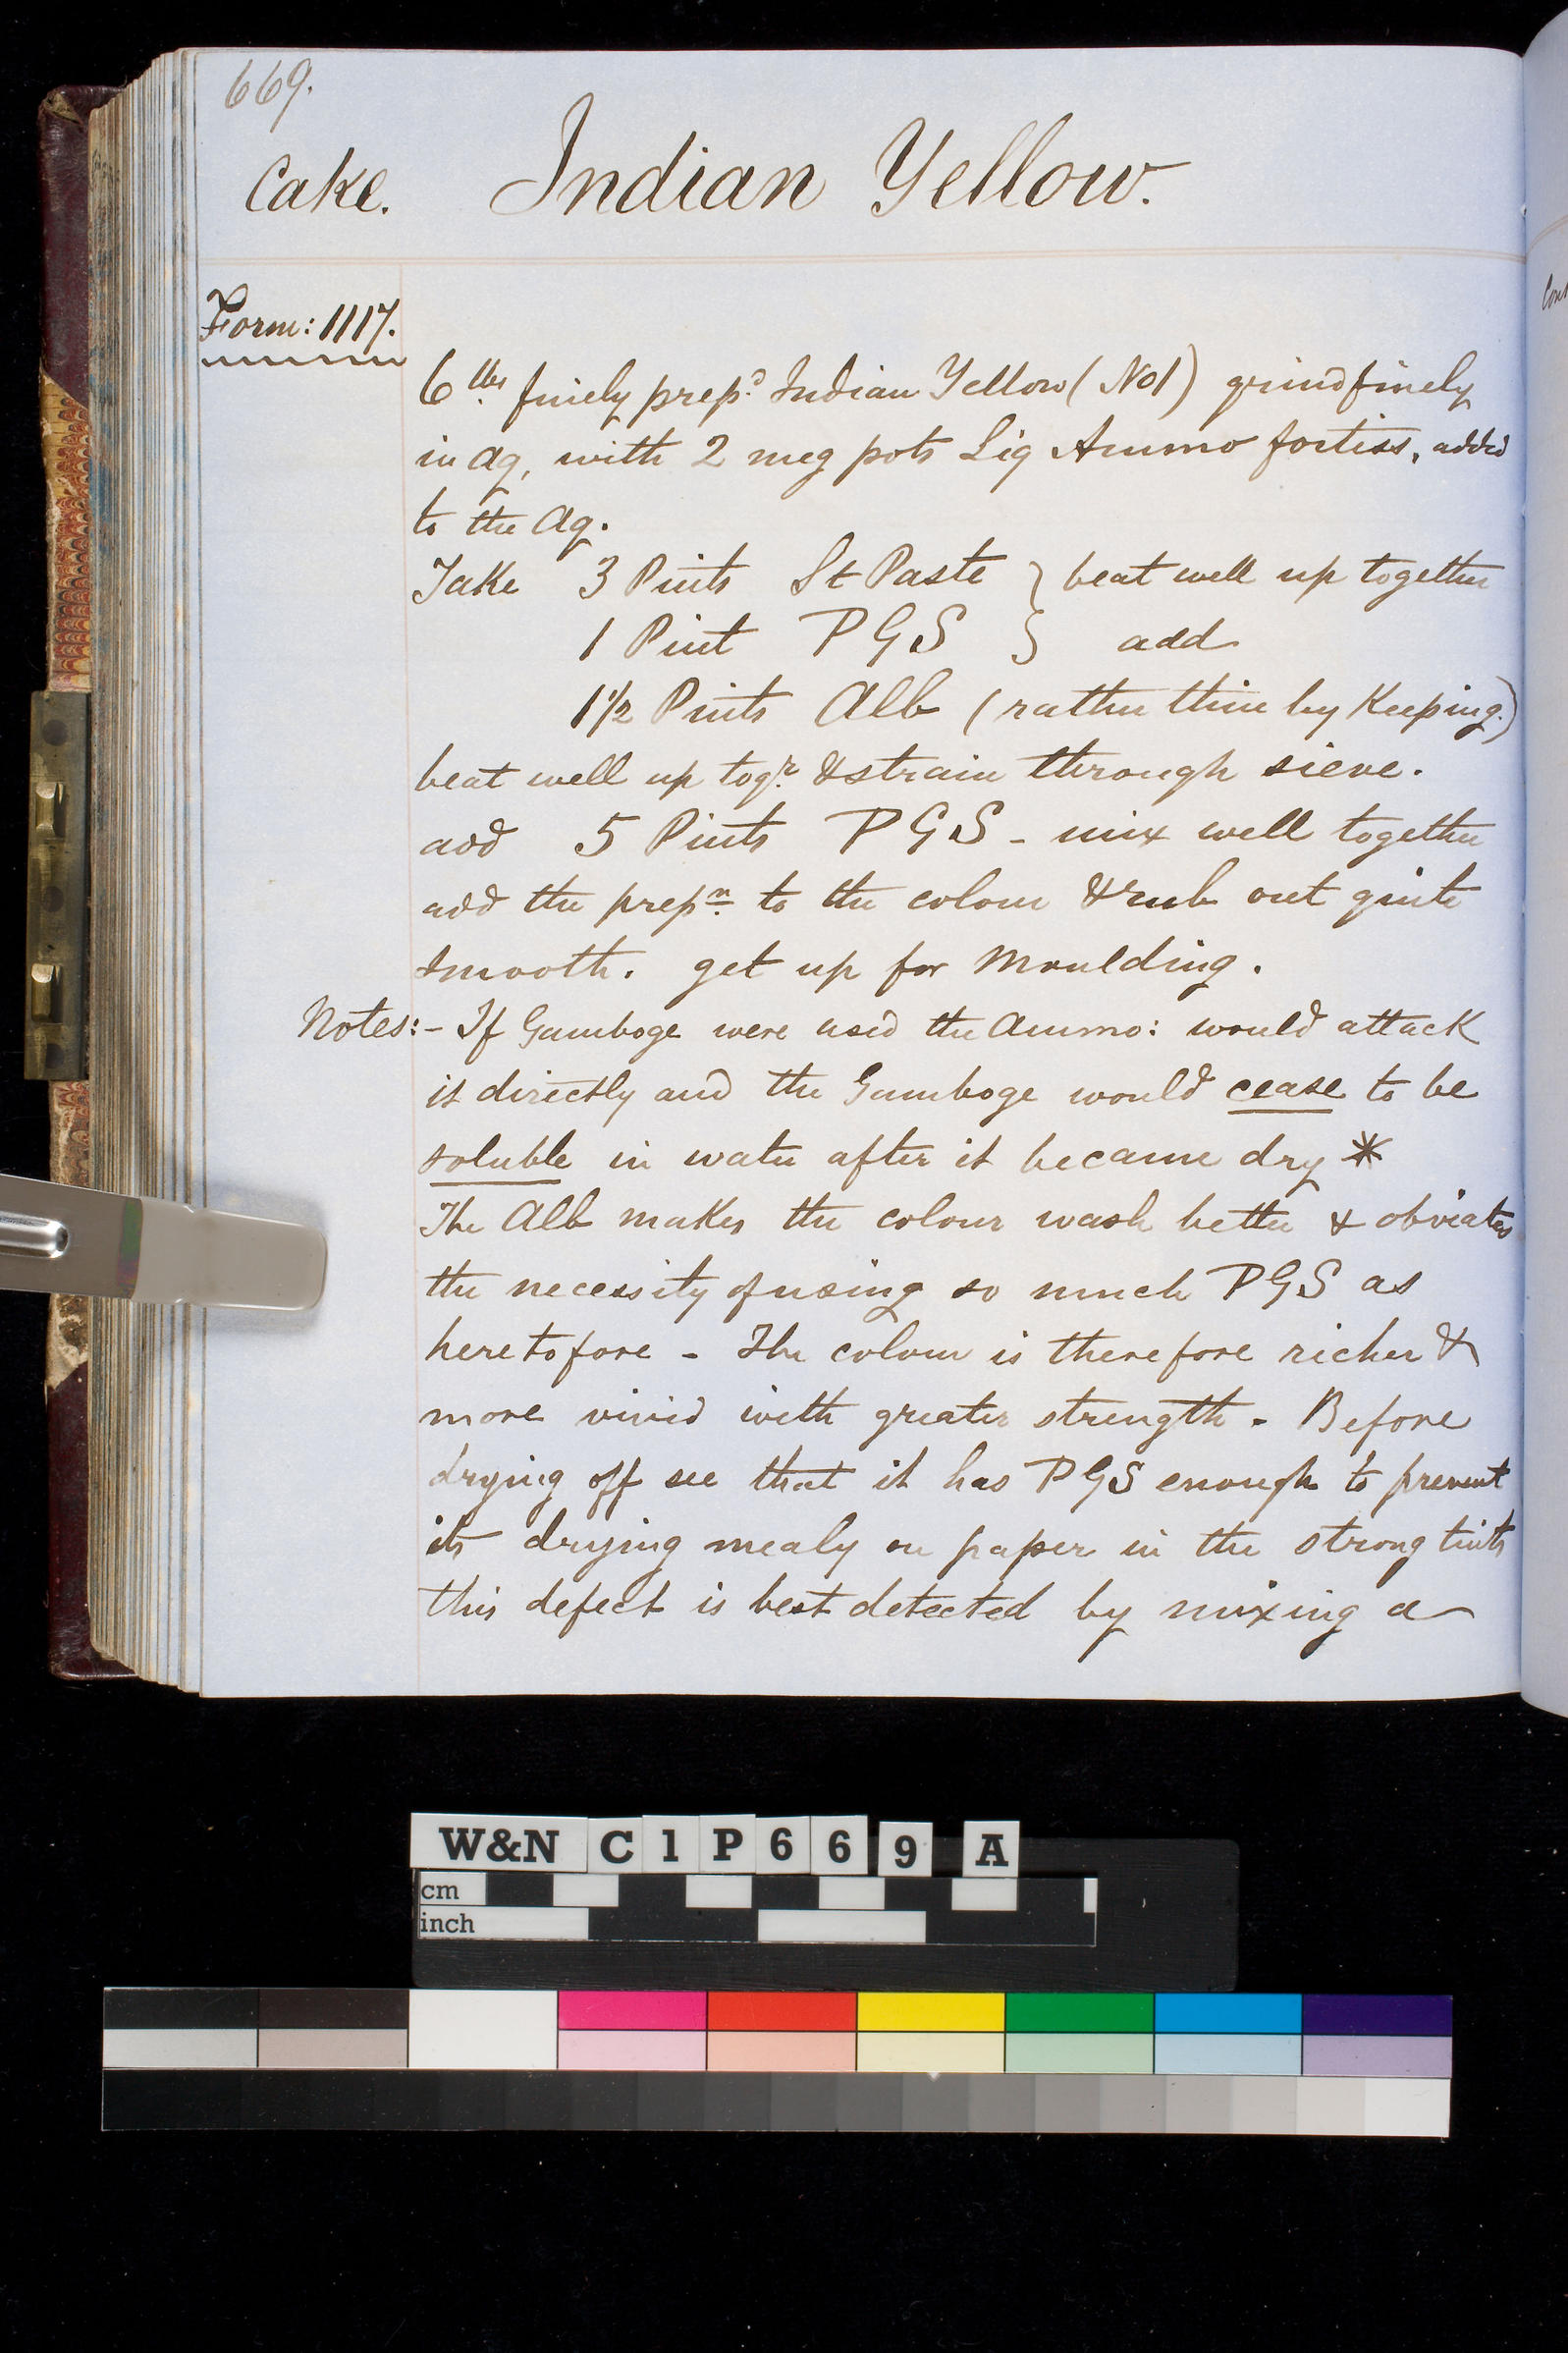 669.
Cake. Indian Yellow.
Form: 1117.
6 lbs finely prepd. Indian Yellow (No1) grind finely
in aq, with 2 meg pots Liq Ammo fortiss. added
to the aq.
Take 3 Pints St Paste } beat well up together
1 Pint PGS } add
1 1/2 Pints Alb (rather thin by Keeping.)
beat well up togr. & strain through sieve.
add 5 Pints PGS - mix well together
add the prepn. to the colour & rub out quite
smooth. get up for Moulding.
Notes:- If Gamboge were used the Ammo: would attack
it directly and the Gamboge would cease to be
soluble in water after it became dry *
The Alb makes the colour wash better & obviates
the necessity of using so much PGS as
heretofore - The colour is therefore richer &
more vivid with greater strength. Before
drying off see that it has PGS enough to prevent
its drying mealy on paper in the strong tints
this defect is best detected by mixing a
W&N C1P669 A
cm
inch